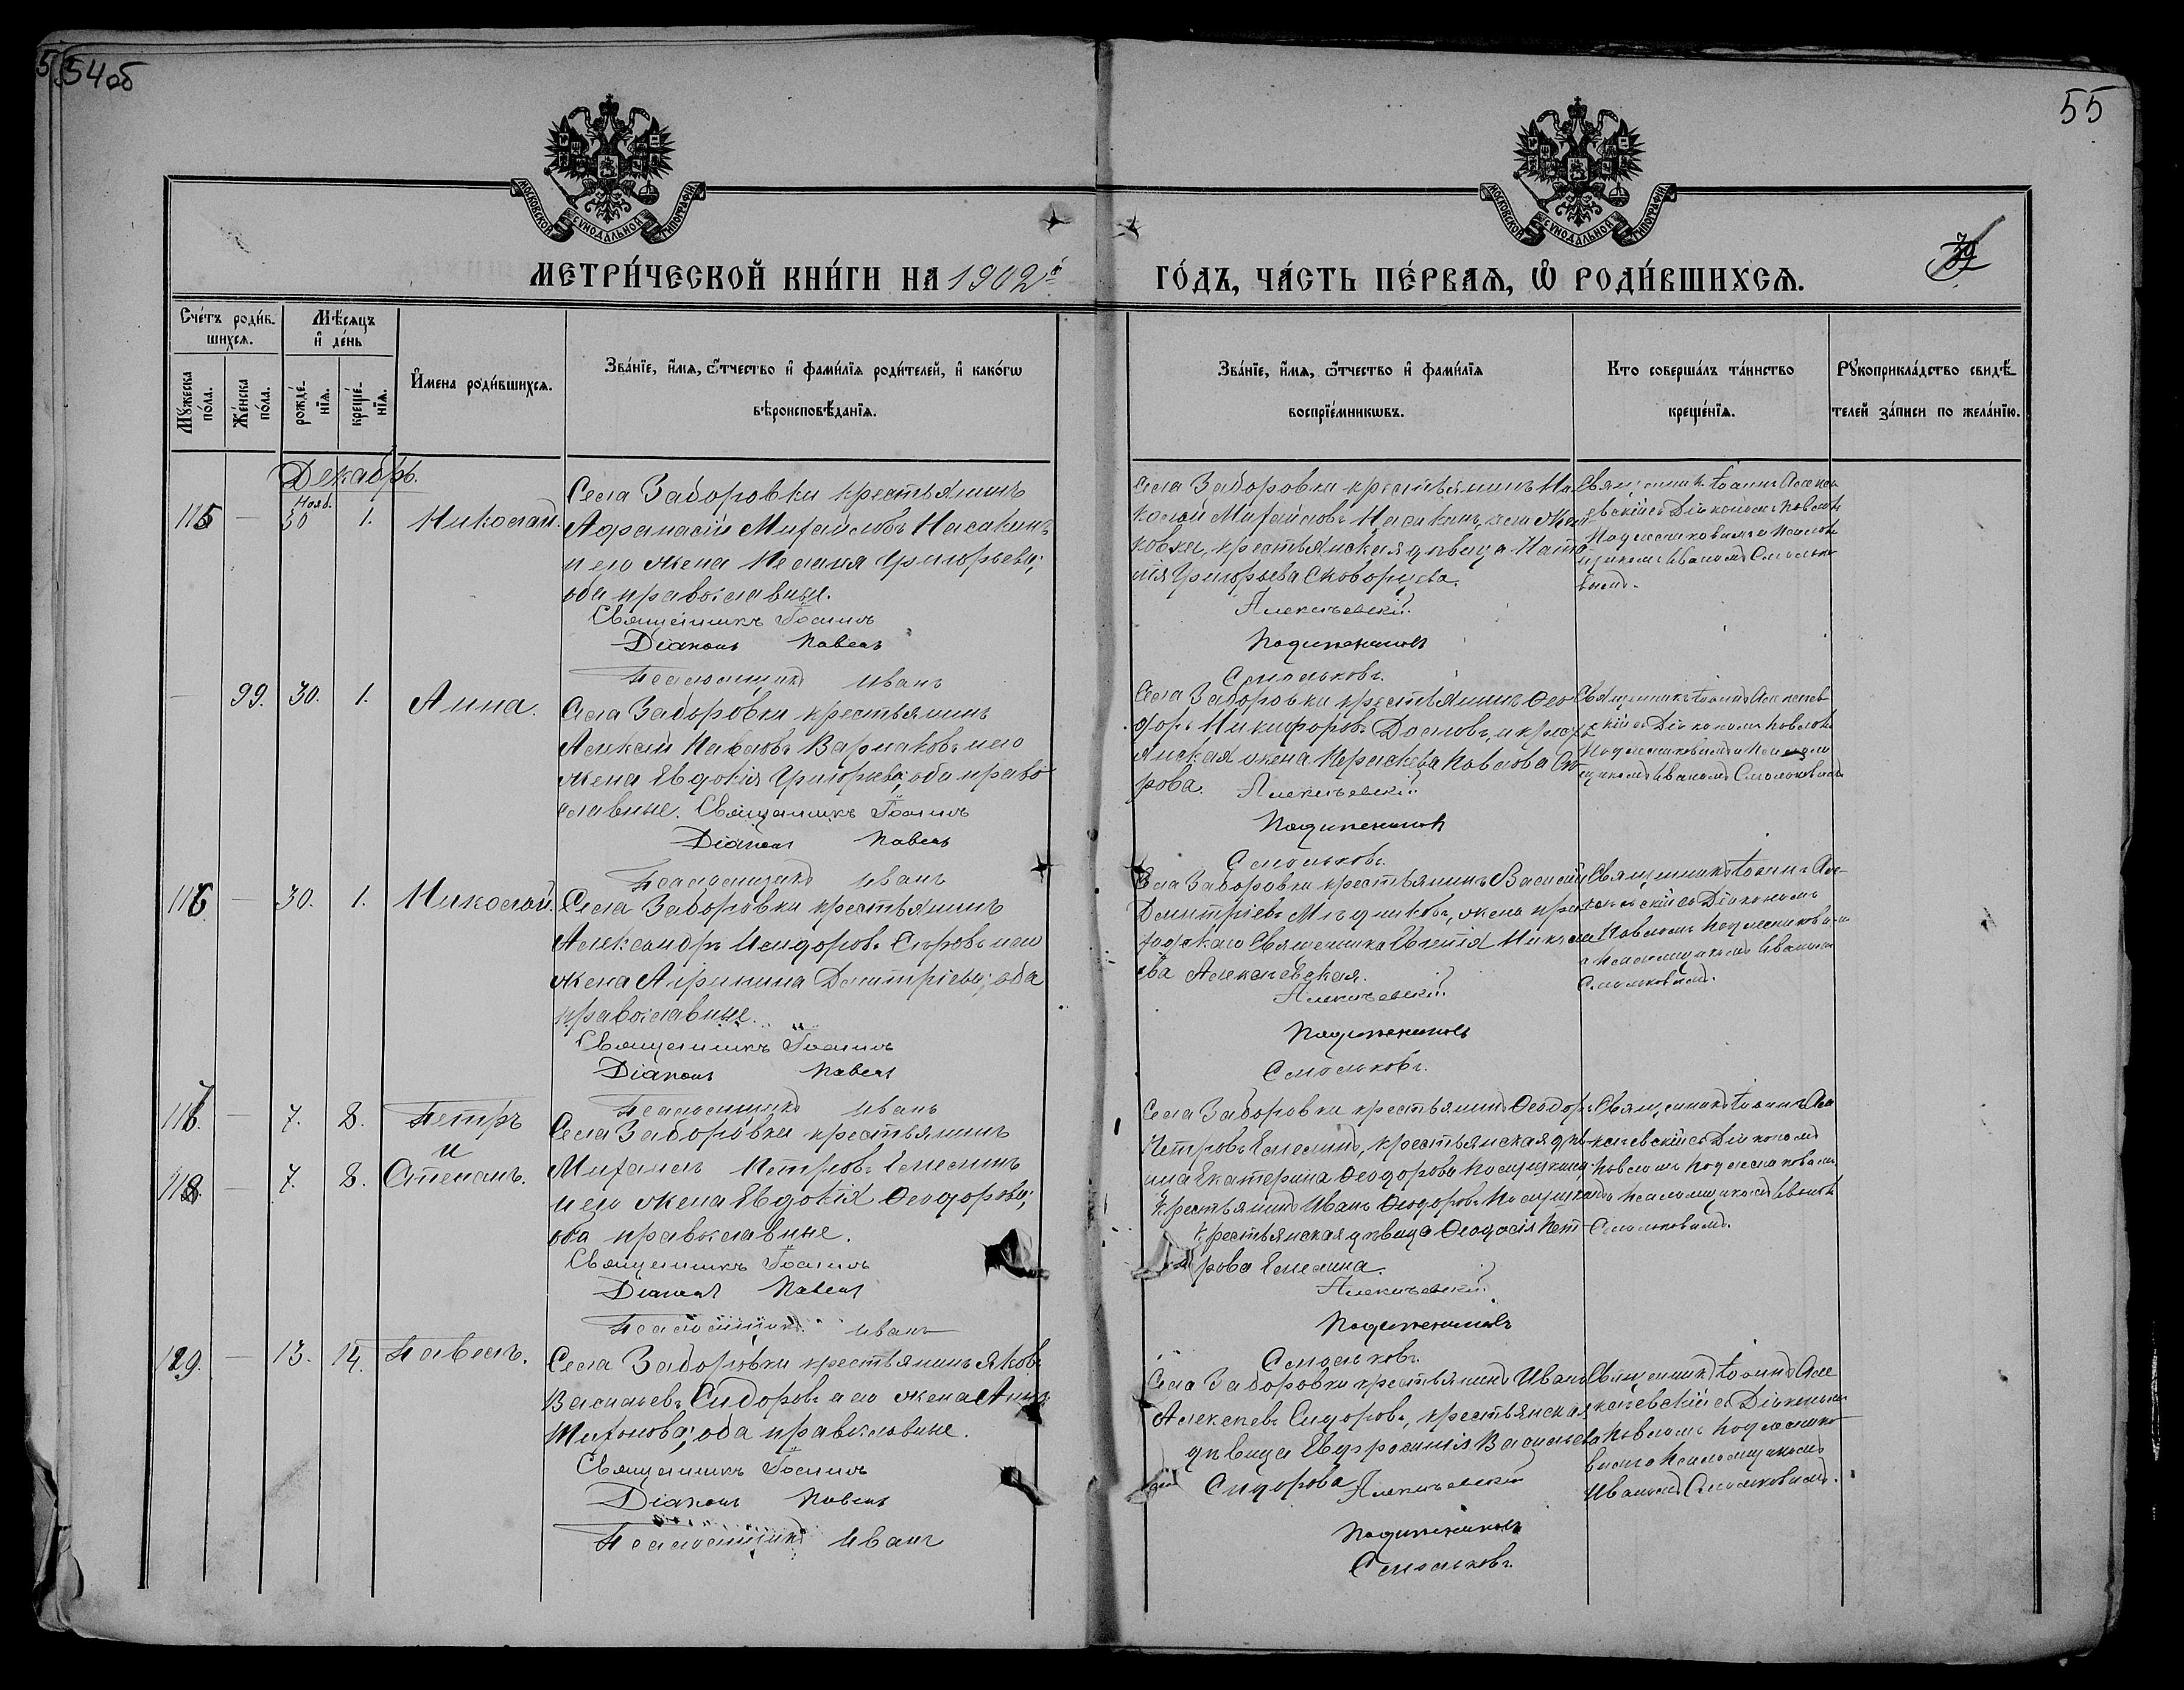 54об
55
МОСКОВСКОЙ СѴНОДАЛЬНОЙ ТИПОГРАФІИ
МОСКОВСКОЙ СѴНОДАЛЬНОЙ ТИПОГРАФІИ
МЕТРИ́ЧЕСКОЙ КНИ́ГИ НА 1902й
ГО́ДЪ, ЧА́СТЬ ПЕ́РВАѦ, Ѡ҆ РОДИ́ВШИХСѦ.
Сче́тъ роди́в-
шихсѧ.
Мѣ́сѧцъ
и҆ де́нь
Мꙋ́жеска
по́ла.
Же́нска
по́ла.
рожде́-
нїѧ.
креще́-
нїѧ.
И҆мена роди́вшихсѧ.
Зва́нїе, и҆́мѧ, ѻ҆́тчество и҆ фами́лїѧ роди́телей, и҆ како́гѡ
вѣроисповѣ́данїѧ.
Зва́нїе, и҆́мѧ, ѻ҆́тчество и҆ фами́лїѧ
воспрїе́мникѡвъ.
Кто соверша́лъ та́инство
креще́нїѧ.
Рꙋкоприкла́дство свидѣ́-
телей за́писи по жела́нїю.
Декабрь.
115 — Нояб. 30 1. Николай.
Села Заборовки крестьянинъ
Афанасій Михайловъ Насакинъ
и его жена Меланія Григорьева;
оба православные.
Священникъ Іоаннъ
Діаконъ Павелъ
Псаломщикъ Иванъ
Села Заборовки крестьянинъ Ни-
колай Михайловъ Насакинъ,
крестьянская дѣвица Ната-
лія Григорьева Скворцева.
Алексѣевскій.
Подлесниковъ
Смольковъ.
Священникъ Іоаннъ Алексѣ-
евскій съ Діакономъ Павломъ
Подлесниковымъ и Псалом-
щикомъ Иваномъ Смолько-
вымъ.
— 99. 30. 1. Анна.
Села Заборовки крестьянинъ
Алексій Павловъ Варлаковъ и его
жена Евдокія Григорьева; оба право-
славные. Священникъ Іоаннъ
Діаконъ Павелъ
Псаломщикъ Иванъ
Села Заборовки крестьянинъ Ѳео-
доръ Никифоровъ Долговъ, и кресть-
янская жена Параскева Павлова
рова. Алексѣевскій.
Подлесниковъ
Смольковъ.
Священникъ Іоаннъ Алексѣев-
скій съ Діакономъ Павломъ
Подлесниковымъ и Псалом-
щикомъ Иваномъ Смольковымъ
116 — 30. 1. Николай.
Села Заборовки крестьянинъ
Александръ Исидоровъ Сѣровъ и его
жена Агрипина Димитріева; оба
православные.
Священникъ Іоаннъ
Діаконъ Павелъ
Псаломщикъ Иванъ
Села Заборовки крестьянинъ Василій
Димитріевъ Мѣдниковъ, жена при-
ходскаго Священника Евгенія Никола-
ева Алексѣевская.
Алексѣевскій.
Подлесниковъ
Смольковъ.
Священникъ Іоаннъ Але-
ксѣевскій съ Діакономъ
Павломъ Подлесниковымъ
и Псаломщикомъ Иваномъ
Смольковымъ.
117. — 7. 8. Петръ
и
118. — 7. 8. Степанъ.
Села Заборовки крестьянинъ
Михаилъ Петровъ Емелинъ
и его жена Евдокія Ѳеодорова;
оба православные.
Священникъ Іоаннъ
Діаконъ Павелъ
Псаломщикъ Иванъ
Села Заборовки крестьянинъ Ѳеодоръ
Петровъ Емелинъ, крестьянская дѣви-
ца Екатерина Ѳеодорова
крестьянинъ Иванъ Ѳеодоровъ
крестьянская дѣвица Ѳеодосія Пет-
рова Емелина.
Алексѣевскій.
Подлесниковъ
Смольковъ.
Священникъ Іоаннъ Але-
ксѣевскій съ Діакономъ
Павломъ Подлесниковымъ
и Псаломщикомъ Иваномъ
Смольковымъ.
119. — 13. 14. Павелъ.
Села Заборовки крестьянинъ Яковъ
Васильевъ Сидоровъ и его жена Анна
Тихонова; оба православные.
Священникъ Іоаннъ
Діаконъ Павелъ
Псаломщикъ Иванъ
Села Заборовки крестьянинъ Иванъ
Алексѣевъ Сидоровъ, крестьянская
дѣвица Евфросинія Васильева
Сидорова. Алексѣевскій
Подлесниковъ
Смольковъ.
Священникъ Іоаннъ Але-
ксѣевскій съ Діакономъ
Павломъ Подлеснико-
вымъ и Псаломщикомъ
Иваномъ Смольковымъ.